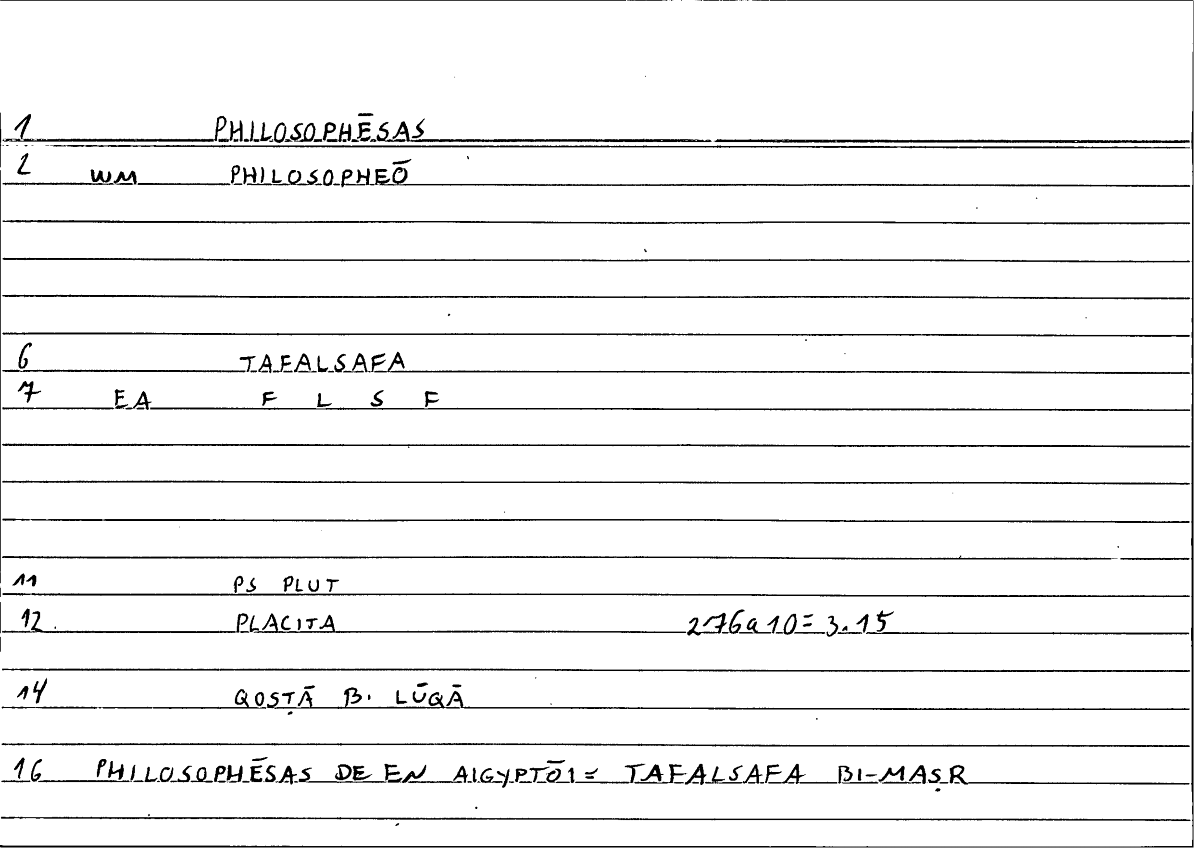 1 PHILOSOPHĒSAS
2 WM PHILOSOPHEŌ
6 TAFALSAFA
7 EA F L S F
11 PS PLUT
12. PLACITA 276a10= 3.15
14 QOSṬĀ B. LŪQĀ
16 PHILOSOPHĒSAS DE EN AIGYPTŌI= TAFALSAFA BI-MAṢR